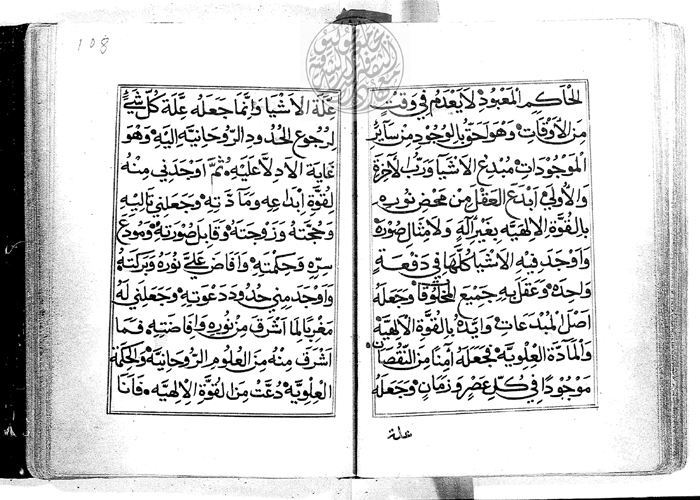 الحاكم المعبود لا يعدم في وقتٍ
من الاوقات وهو احق بالوجود من سائر
الموجودات مبدع الاشيا ورب الاخرة
والاولي ابدع العقل من محض نوره
بالقوة الالهيه بغير آلةٍ ولا مثال صوره
واوجد فيه الاشيا كلها في دفعةٍ
واحده وعقل به جميع المخلوقات وجعله
اصل المبدعات وايده بالقوة الالهيه
والمآدة العلويه فجعله آمنا من النقصان
موجودا في كل عصر وزمان وجعله
علة
108
علة الاشيا وانما جعله علة كل شيءٍ
لرجوع الحدود الروحانيه اليه وهو
غاية الادلا عليه ثم اوجدني منه
لقوة ابداعه ومآدته وجعلني تاليه
وحجته وزوجته وقابل صورته ومودع
سره وحكمته وافاض علي نوره وبركته
واوجد مني حدود دعوته وجعلني له
مغربا لما اشرق من نوره وافاضته فما
اشرق منه من العلوم الروحانيه والحكمة
العلويه دعت من القوة الالهيه فانا